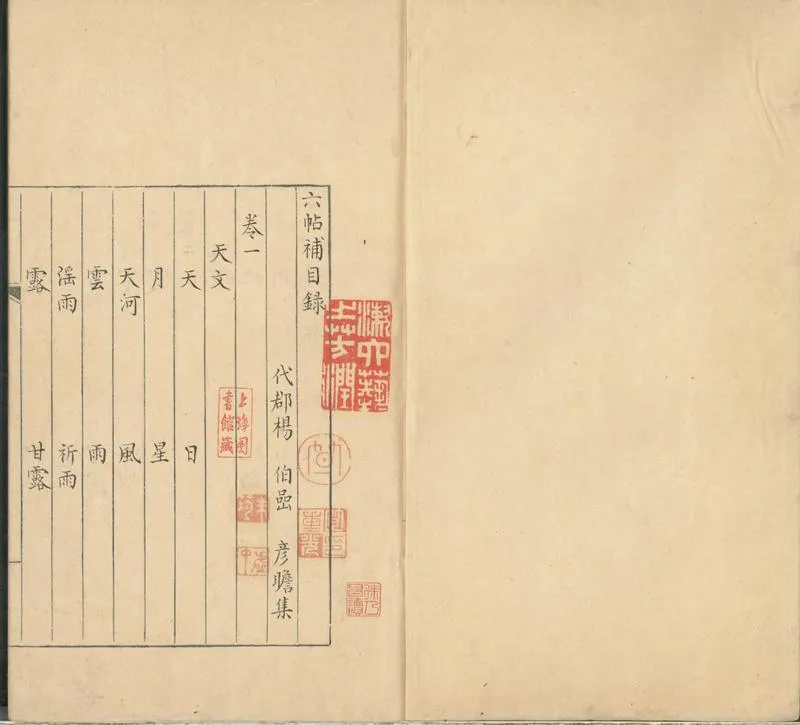 六帖補目録
代郡楊 伯嵒 彦瞻集
卷一
天文
天 日
月 星
天河 風
雲 雨
滛雨 祈雨
露 甘露
漱六藝
之芳潤
上海圖
書館藏